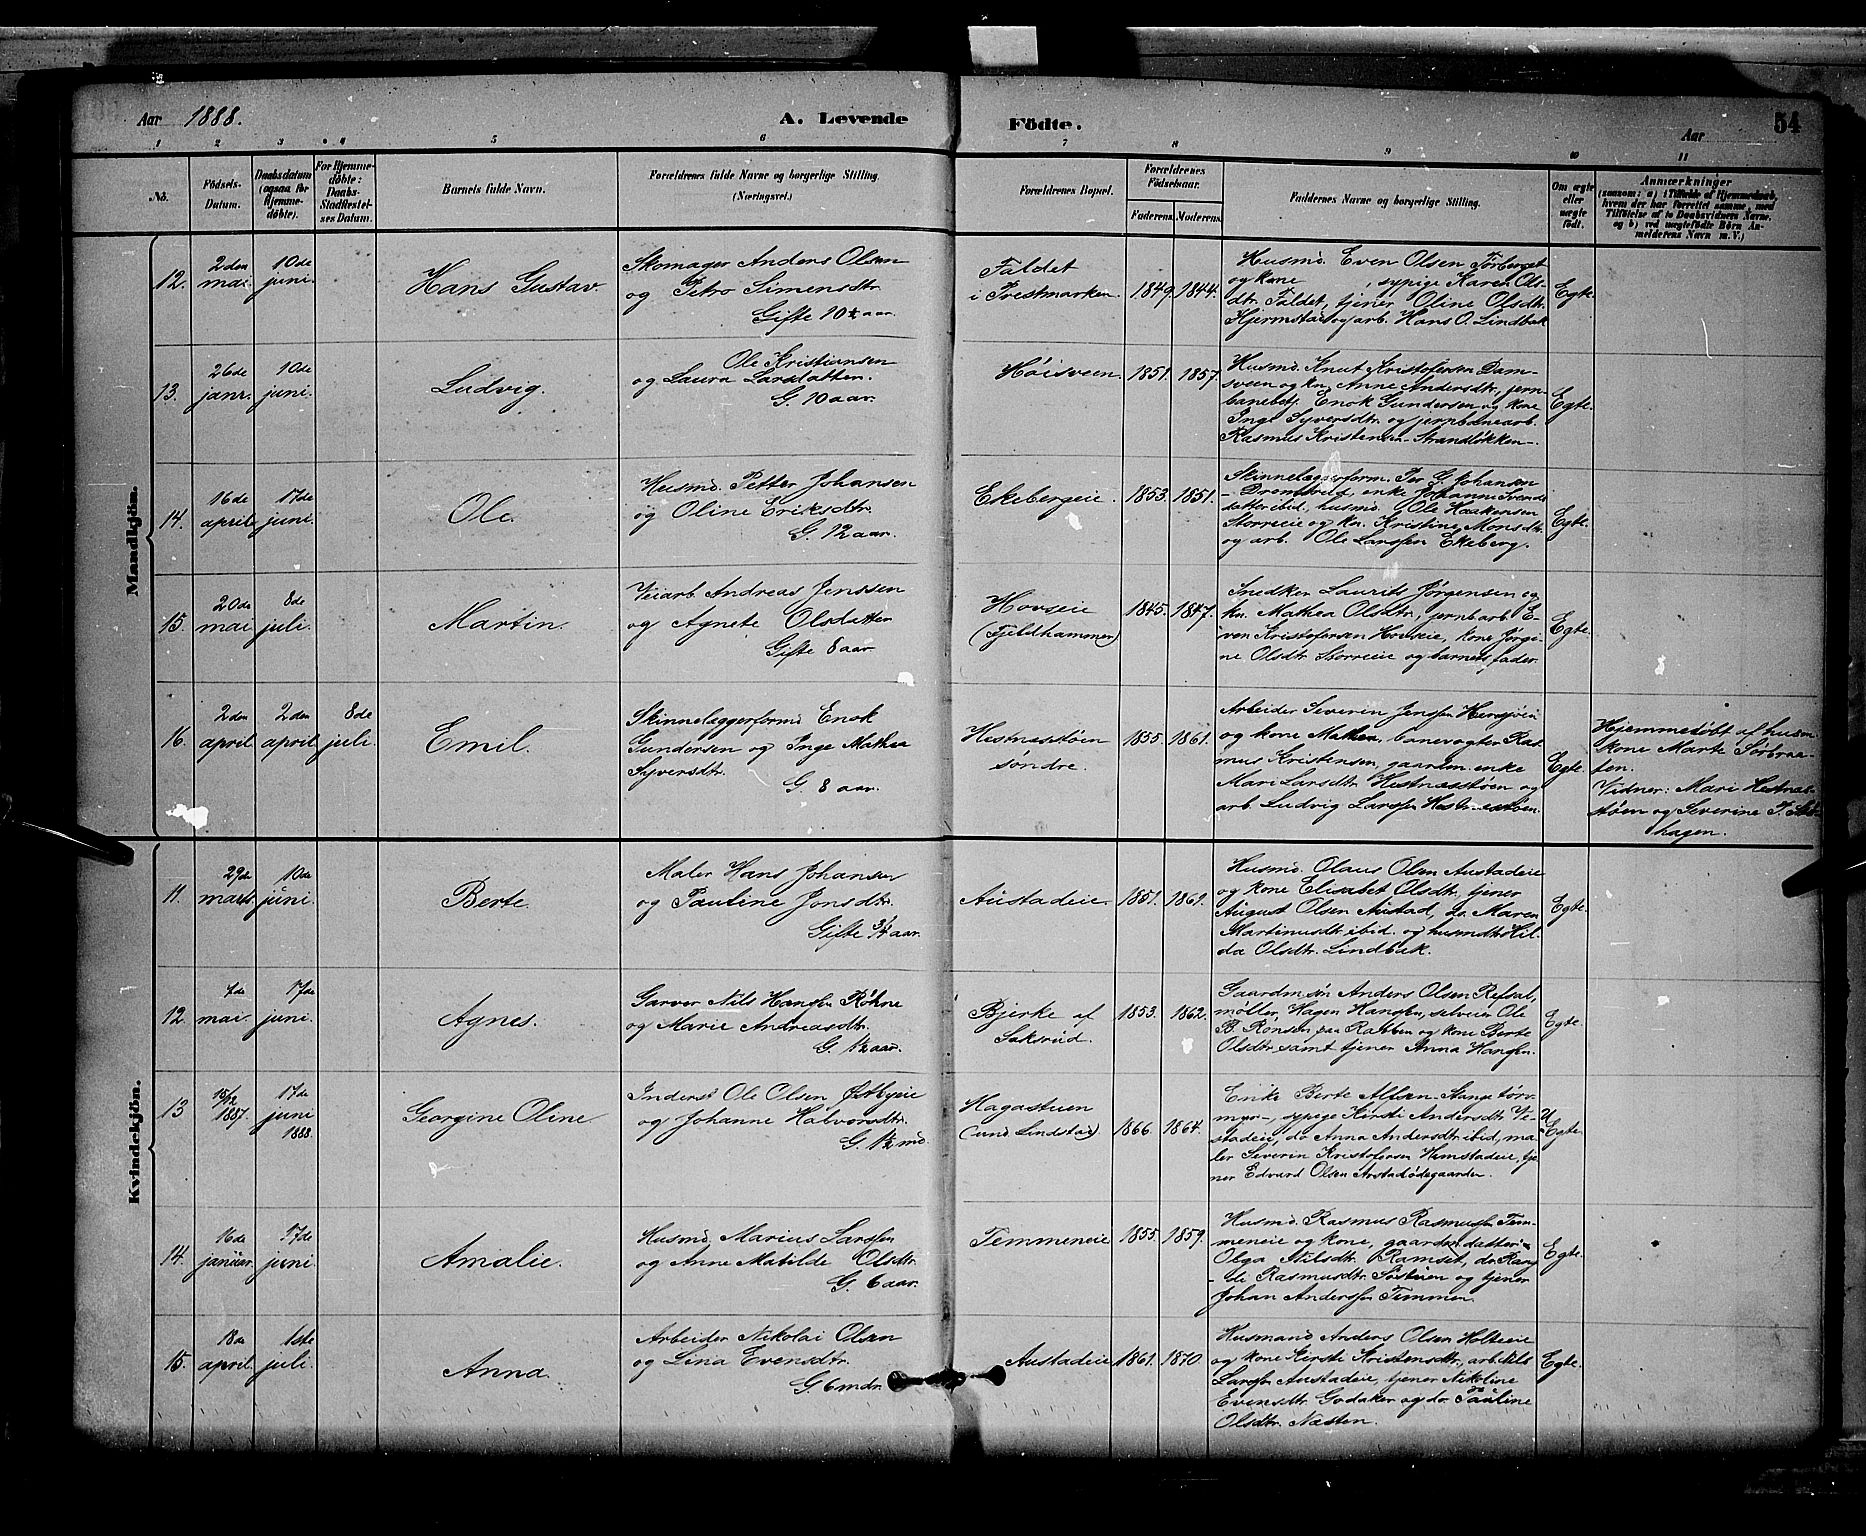 Aar 1888. A. Levende Födte. Aar 54
1 2 3 4 5 6 7 8 9 10 11
No.
Födsels-
Datum.
Daabsdatum
(ogsaa for
Hjemme-
döbte).
For Hjemme-
döbte:
Daabs-
Stadfæstel-
ses Datum.
Barnets fulde Navn.
Forældrenes fulde Navne og borgerlige Stilling.
(Næringsvei.)
Forældrenes Bopæl.
Forældrenes
Födselsaar.
Faderens. Moderens.
Faddernes Navne og borgerlige Stilling.
Om ægte
eller
uægte
født.
Anmærkninger
(saasom: a) i Tilfælde af Hjemmedaab,
hvem der har forrettet samme, med
Tilföielse af to Daabsvidners Navne,
og b) ved uægtefödte Börn An-
melderens Navn m. V.)
Mandkjön.
12.
2den
mai.
10de
juni.
Hans Gustav
Skomager Anders Olsen
og Petro Simensdtr.
Gifte 10½ aar.
Faldet
i Prestmarken
1849. 1844.
Husmd. Even Olsen Torberget
og kone , sypige Karen Ols-
dtr. Faldet, tjener Oline Olsdtr.
Hjermstad og arb. Hans O. Lindbak
Egte.
13.
26de
janr.
10de
juni.
Ludvig.
Ole Kristiansen
og Laura Larsdatter.
G. 10 aar.
Höisveen
1851. 1857.
Husmd. Knut Kristofersen Dam-
sveen og kn. Anne Andersdtr., jern-
banebetj. Enok Gundersen og kone
Inge Syversdtr og jernbanearb.
Rasmus Kristensen Strandløkken
Egte.
14.
16de
april.
17de
juni.
Ole.
Husmd. Petter Johansen
og Oline Eriksdtr.
G. 12 aar.
Ekebergeie.
1853. 1851.
Skinnelæggerform. Per G. Johansen
, enke Johanne Svends-
datter ibid, husmd. Ole Haakensen
Storreeie og kn. Kristine Monsdtr
og arb. Ole Larssen Ekeberg.
Egte.
15.
20de
mai.
8de
juli.
Martin.
Veiarb. Andreas Jenssen
og Agnete Olsdatter
Gifte 8 aar.
Hovseie
(Fjeldhammer)
1845. 1847.
Snedker Laurits Jørgensen og
kn. Mathea Olsdtr., jernb.arb. E-
ven Kristofersen Hovseie, kone Jørgi-
ne Olsdtr. Storreeie og barnets fader.
Egte.
16.
2den
april.
2den
april.
8de
juli.
Emil.
Skinnelæggerformd Enok
Gundersen og Inge Mathea
Syversdtr.
G. 8 aar.
Hestnæsstøen
søndre.
1855. 1861.
Arbeider Severin Jenssen
og kone Mathea, banevogter Ras-
mus Kristensen, gaardm.enke
Mari Larsdtr. Hestnæsstøen og
arb Ludvig Larssen Hestnæsstøen.
Egte.
Hjemmedøbt af husm-
kone Marte Sørbraa-
ten.
Vidner: Mari Hestnæs-
støen og Severine P.
hagen.
Kvindekjön.
11.
29de
marts
10de
juni.
Berte.
Maler Hans Johansen
og Pauline Jonsdtr.
Gifte 3/4 aar.
Austadeie.
1851. 1861.
Husmd. Olaus Olsen Austadeie
og kone Elisabet Olsdtr, tjener
August Olsen Austad, do. Maren
Martinusdtr ibid. og husmdtr Hil-
da Olsdtr. Lindbak.
Egte.
12.
7de
mai.
17de
juni.
Agnes.
Garver Nils Hanssen Røhne
og Marie Andreasdtr.
G. ½ aar.
Bjerke af
Saksrud.
1853. 1862.
Gaardmsøn Anders Olsen Refsal,
møller Hagen Hanssen, selveier Ole
B. Ronsen paa Rabben og kone Berte
Olsdtr, samt tjener Anna Hanssen.
Egte.
13
15/12
1887.
17de
juni
1888.
Georgine Oline.
Inderst Ole Olsen Østbyeie
og Johanne Halvorsdtr.
G. 1½ md.
Hagastuen
(und. Lindstad)
1866. 1864.
Enke Berte Alfsen Stangstorv-
myr, sypige Kirsti Andersdtr. Ve-
stadeie, do Anna Andersdtr ibid, ma-
ler Severin Kristofersen Himstadeie, tje-
ner Edvard Olsen Arstadødegaarden
U
Egte.
14.
16de
januar.
17de
juni.
Amalie.
Husmd. Marius Larssen
og Anne Matilde Olsdtr.
G. 6 aar.
Temmeneie
1855. 1859.
Husmd. Rasmus Rasmussen Tem-
meneie og kone, gaardmdatter
Olga Nilsdtr. Ramset, do. Rag-
Rasmusdtr. og tjener
Johan Anderssen Temmen.
Egte.
15.
18de
april.
1ste
juli.
Anna.
Arbeider Nikolai Olsen
og Lina Evensdtr.
G. 6 mdr.
Austadeie
1861. 1870.
Husmand Anders Olsen Holteeie
og kone Kirsti Kristensdtr, arb. Nils
Larssen Austadeie, tjener Nikoline
Evensdtr Godaker og do. Pauline
Olsdtr. Næsten.
Egte.